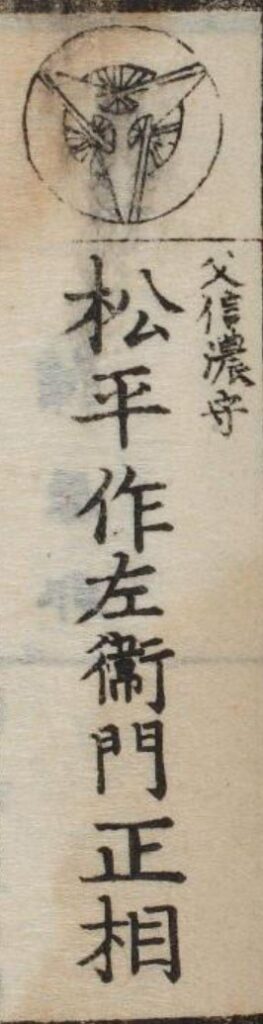 父信濃守
松平作左衛門正相